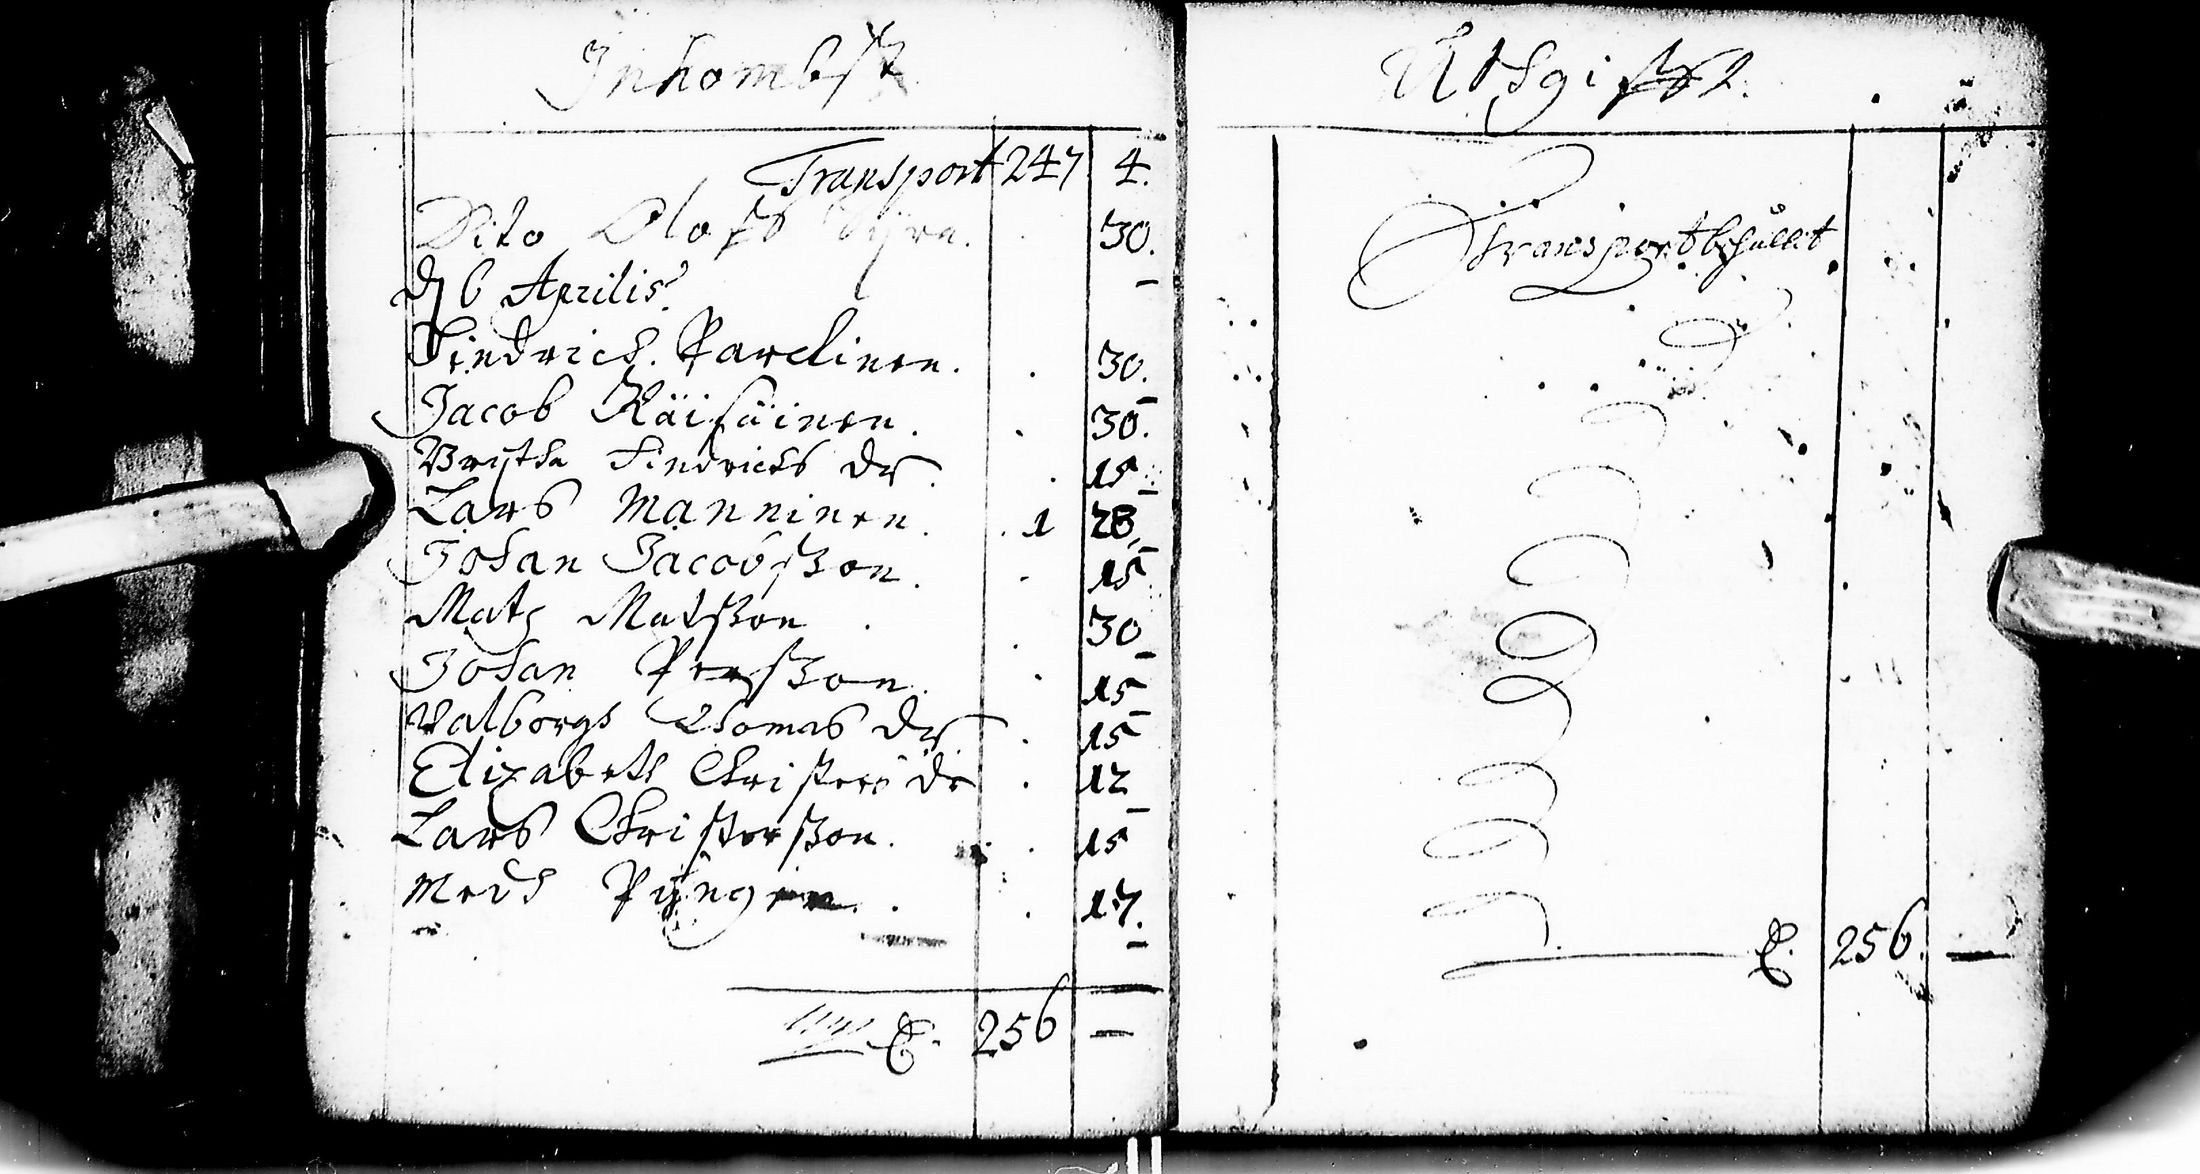 Inkombst
Transport 247 4.
Dito Olofs 30.
d 6 Aprilis
Hindrich Parclinen. . 30.
Jacob Räisäinen. . 30.
Brijtha Hindrichs dr . 15
Lars Manninen. . 1 28.
Johan Jacobsson. . 15
Mats Matsson . . 30
Johan Persson. . 15
Valborgh Thomas dr . 15
Elizabeth Christers dr . 12
Lars Christersson. . 15
Medh . . 17.
256 —
Utgifft.
Transport behållit
256. —